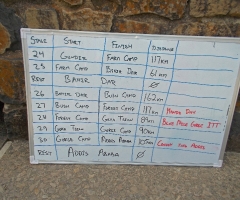 STAGE START FINISH DISTANCE
24 GONDER FARM CAMP 117KM
25 FARM CAMP BAHIR DAR 61KM
REST BAHIR DAR Ø
26 BAHIR DAR BUSH CAMP 162KM
27 BUSH CAMP FOREST CAMP 117KM MANDO DAY
28 FOREST CAMP GOHA TSION 89KM BLUE NILE GORGE ITT
29 GOHA TSION CHURCH CAMP 90KM
30 CHURCH CAMP ADDIS ABABA CONVOY INTO ADDIS
REST ADDIS ABABA Ø